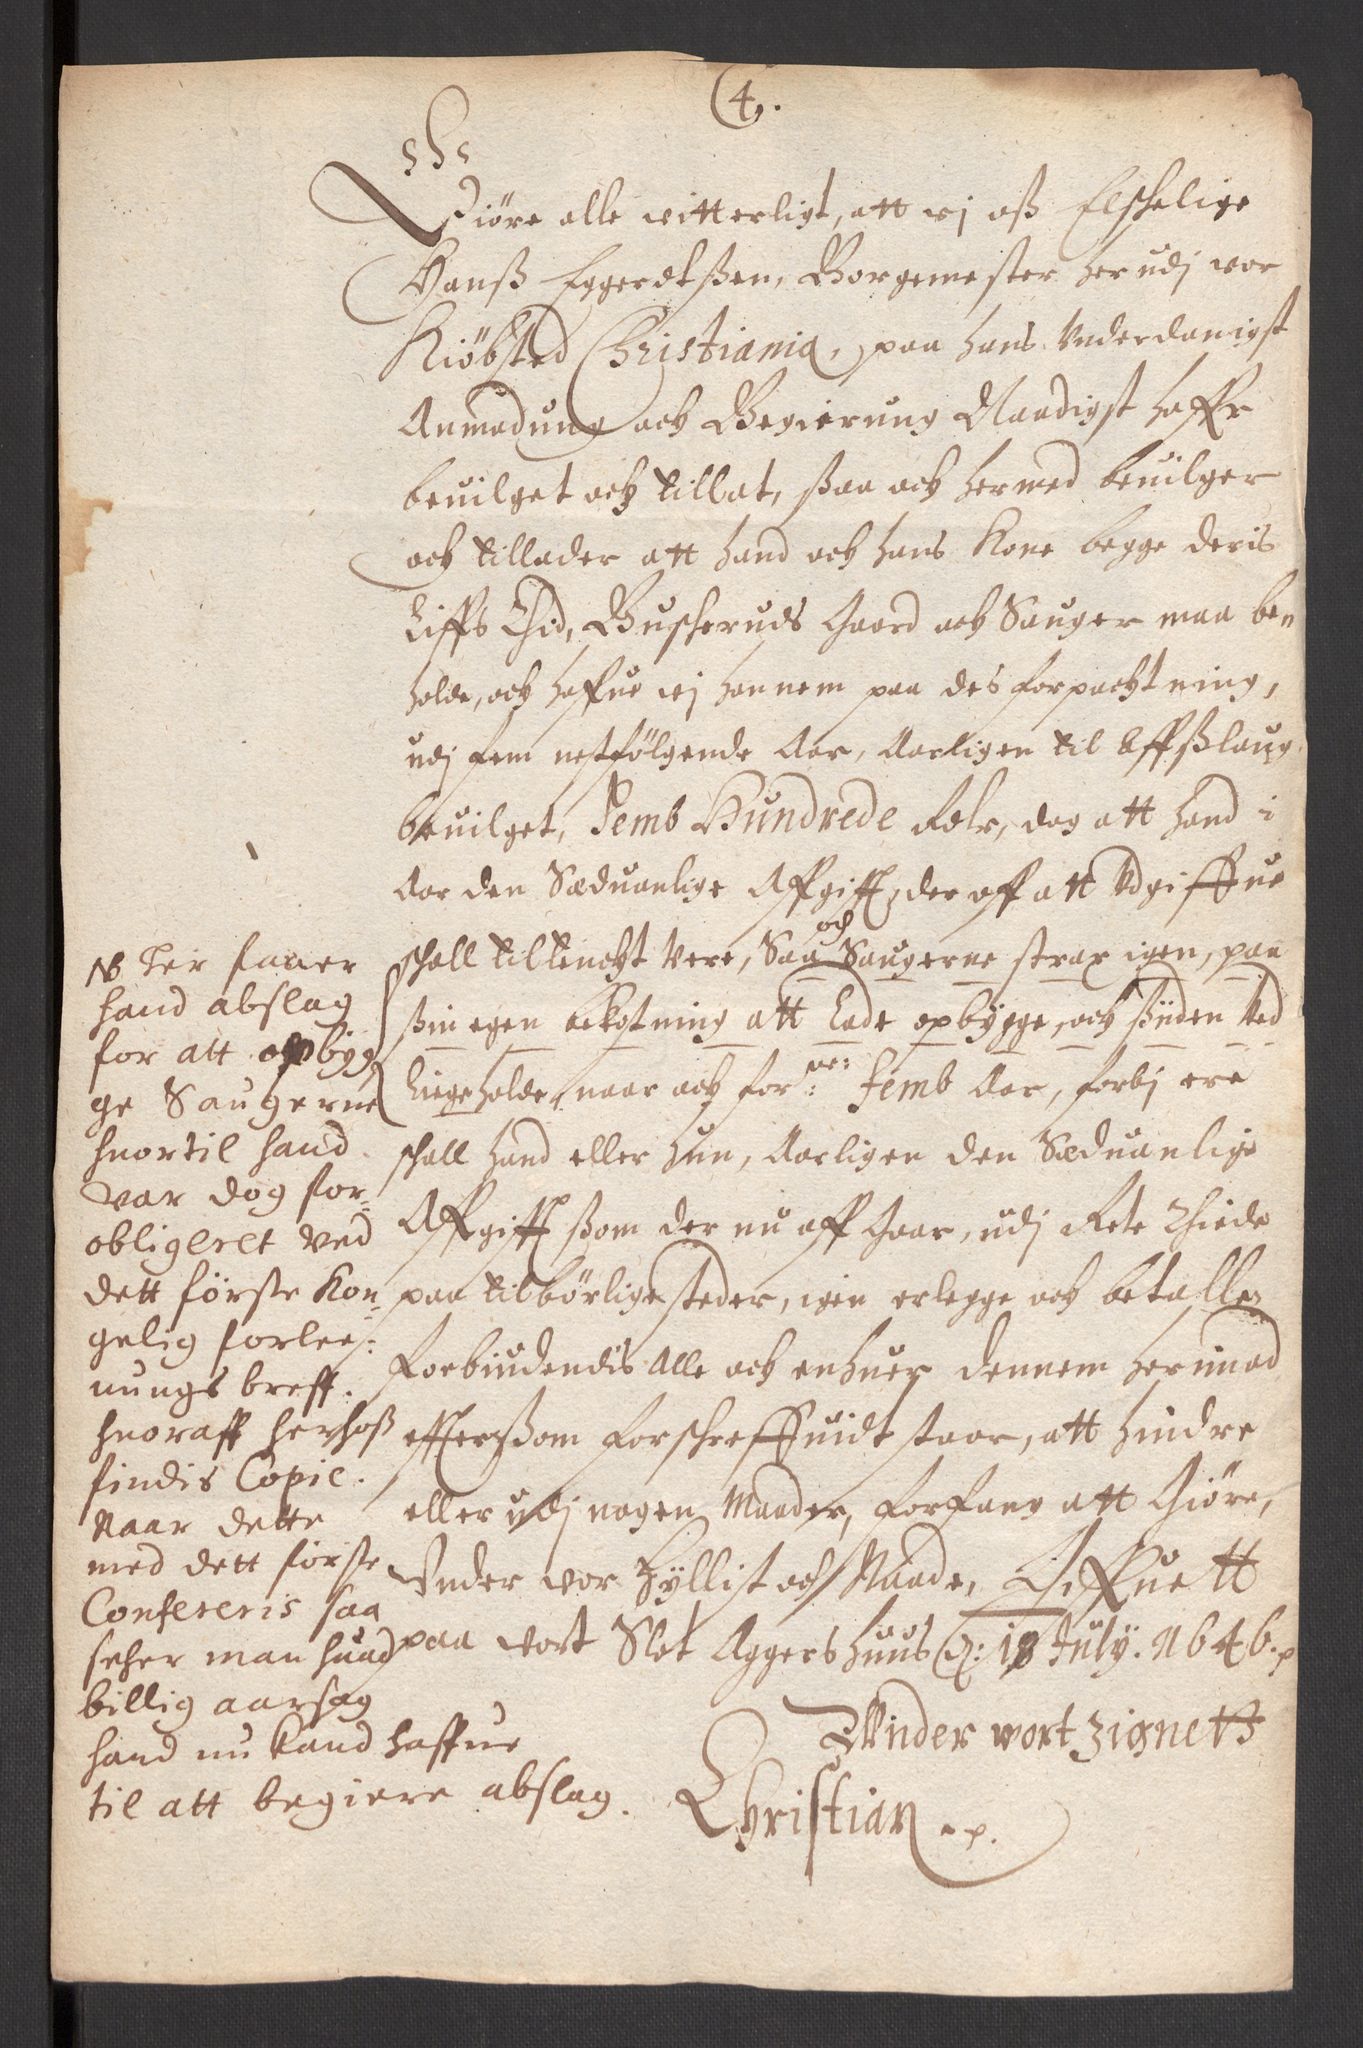 4.
Giöre alle witterligt, att vj oß Elschelige
Hanß Eggerdtßen, Borgemester her udj vor
Kiöbsted Christiania, paa hans Underdanigst
Anmodung och Begierung Naadigst haffr
beuilget och tillat, ßaa och hermed beuilger
och tillader att hand och hans Kone begge deris
Liffs Thid, Buscheruds Gaard och Sauger maa be=
holde, och haffue vj hannem paa des forpachtning,
udj fem nestfölgende Aar, Aarligen til Affßlaug
beuilget, Femb Hundrede Rdlr, dog att hand i
Aar den Sæduanlige Affgifft, der aff att Udgiffue
schall tiltencht Vere, Saa och Saugerne strax igen, paa
ßin egen bekostning att Lade opbÿgge, och ßÿden Ved
Liige holde, naar och forne: Femb Aar, forbj ere
schall hand eller hun, Aarligen den Sæduanlige
Affgifft ßom der nu aff Gaar, udj Rete Thiide
paa tilbörlige steder, igen erlegge och betalle,
Forbiudendis Alle och enhuer dennem her imod
effterßom forschreffuidt staar, att hindre
eller udj nogen Maader, forfang att Giöre,
Under vor Hÿllist och Naade, Giffuett
paa vort Slot Aggershuus d: 18 Julÿ. A 1646. p
Under wort Zignett
Christian
NB Her faaer
hand abslag
for att opbÿg
ge Saugerne
huortil hand
var dog for=
obligeret ved
dett förste Kon=
gelig forlee=
nungs breff.
huoraff herhoß
findis Copie.
Naar dette
med dett förste
Confereris saa
seher man huad
billig aarsag
hand nu kand haffue
til att begiere abslag.